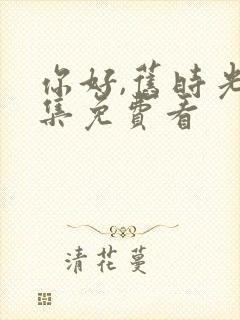 你好,舊時光
集免費看
清花蔓